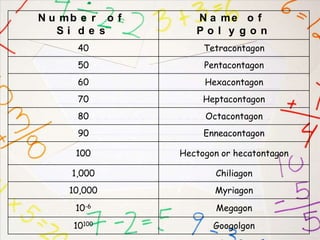 Number of Sides Name of Polygon
40 Tetracontagon
50 Pentacontagon
60 Hexacontagon
70 Heptacontagon
80 Octacontagon
90 Enneacontagon
100 Hectogon or hecatontagon
1,000 Chiliagon
10,000 Myriagon
10-6 Megagon
10100 Googolgon
3+3=6
7-2=5
10
-5
5
+1
4